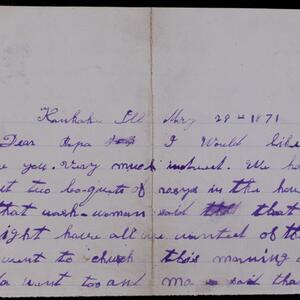 Kankake Ill May 28th 1871
Dear Papa I Would like
e you. Very much indeed. We ha
ut two boquets of roses in the hou
that wash woman said that
ight have all we wanted of th
went to church this morning a
a went too and ma said tha